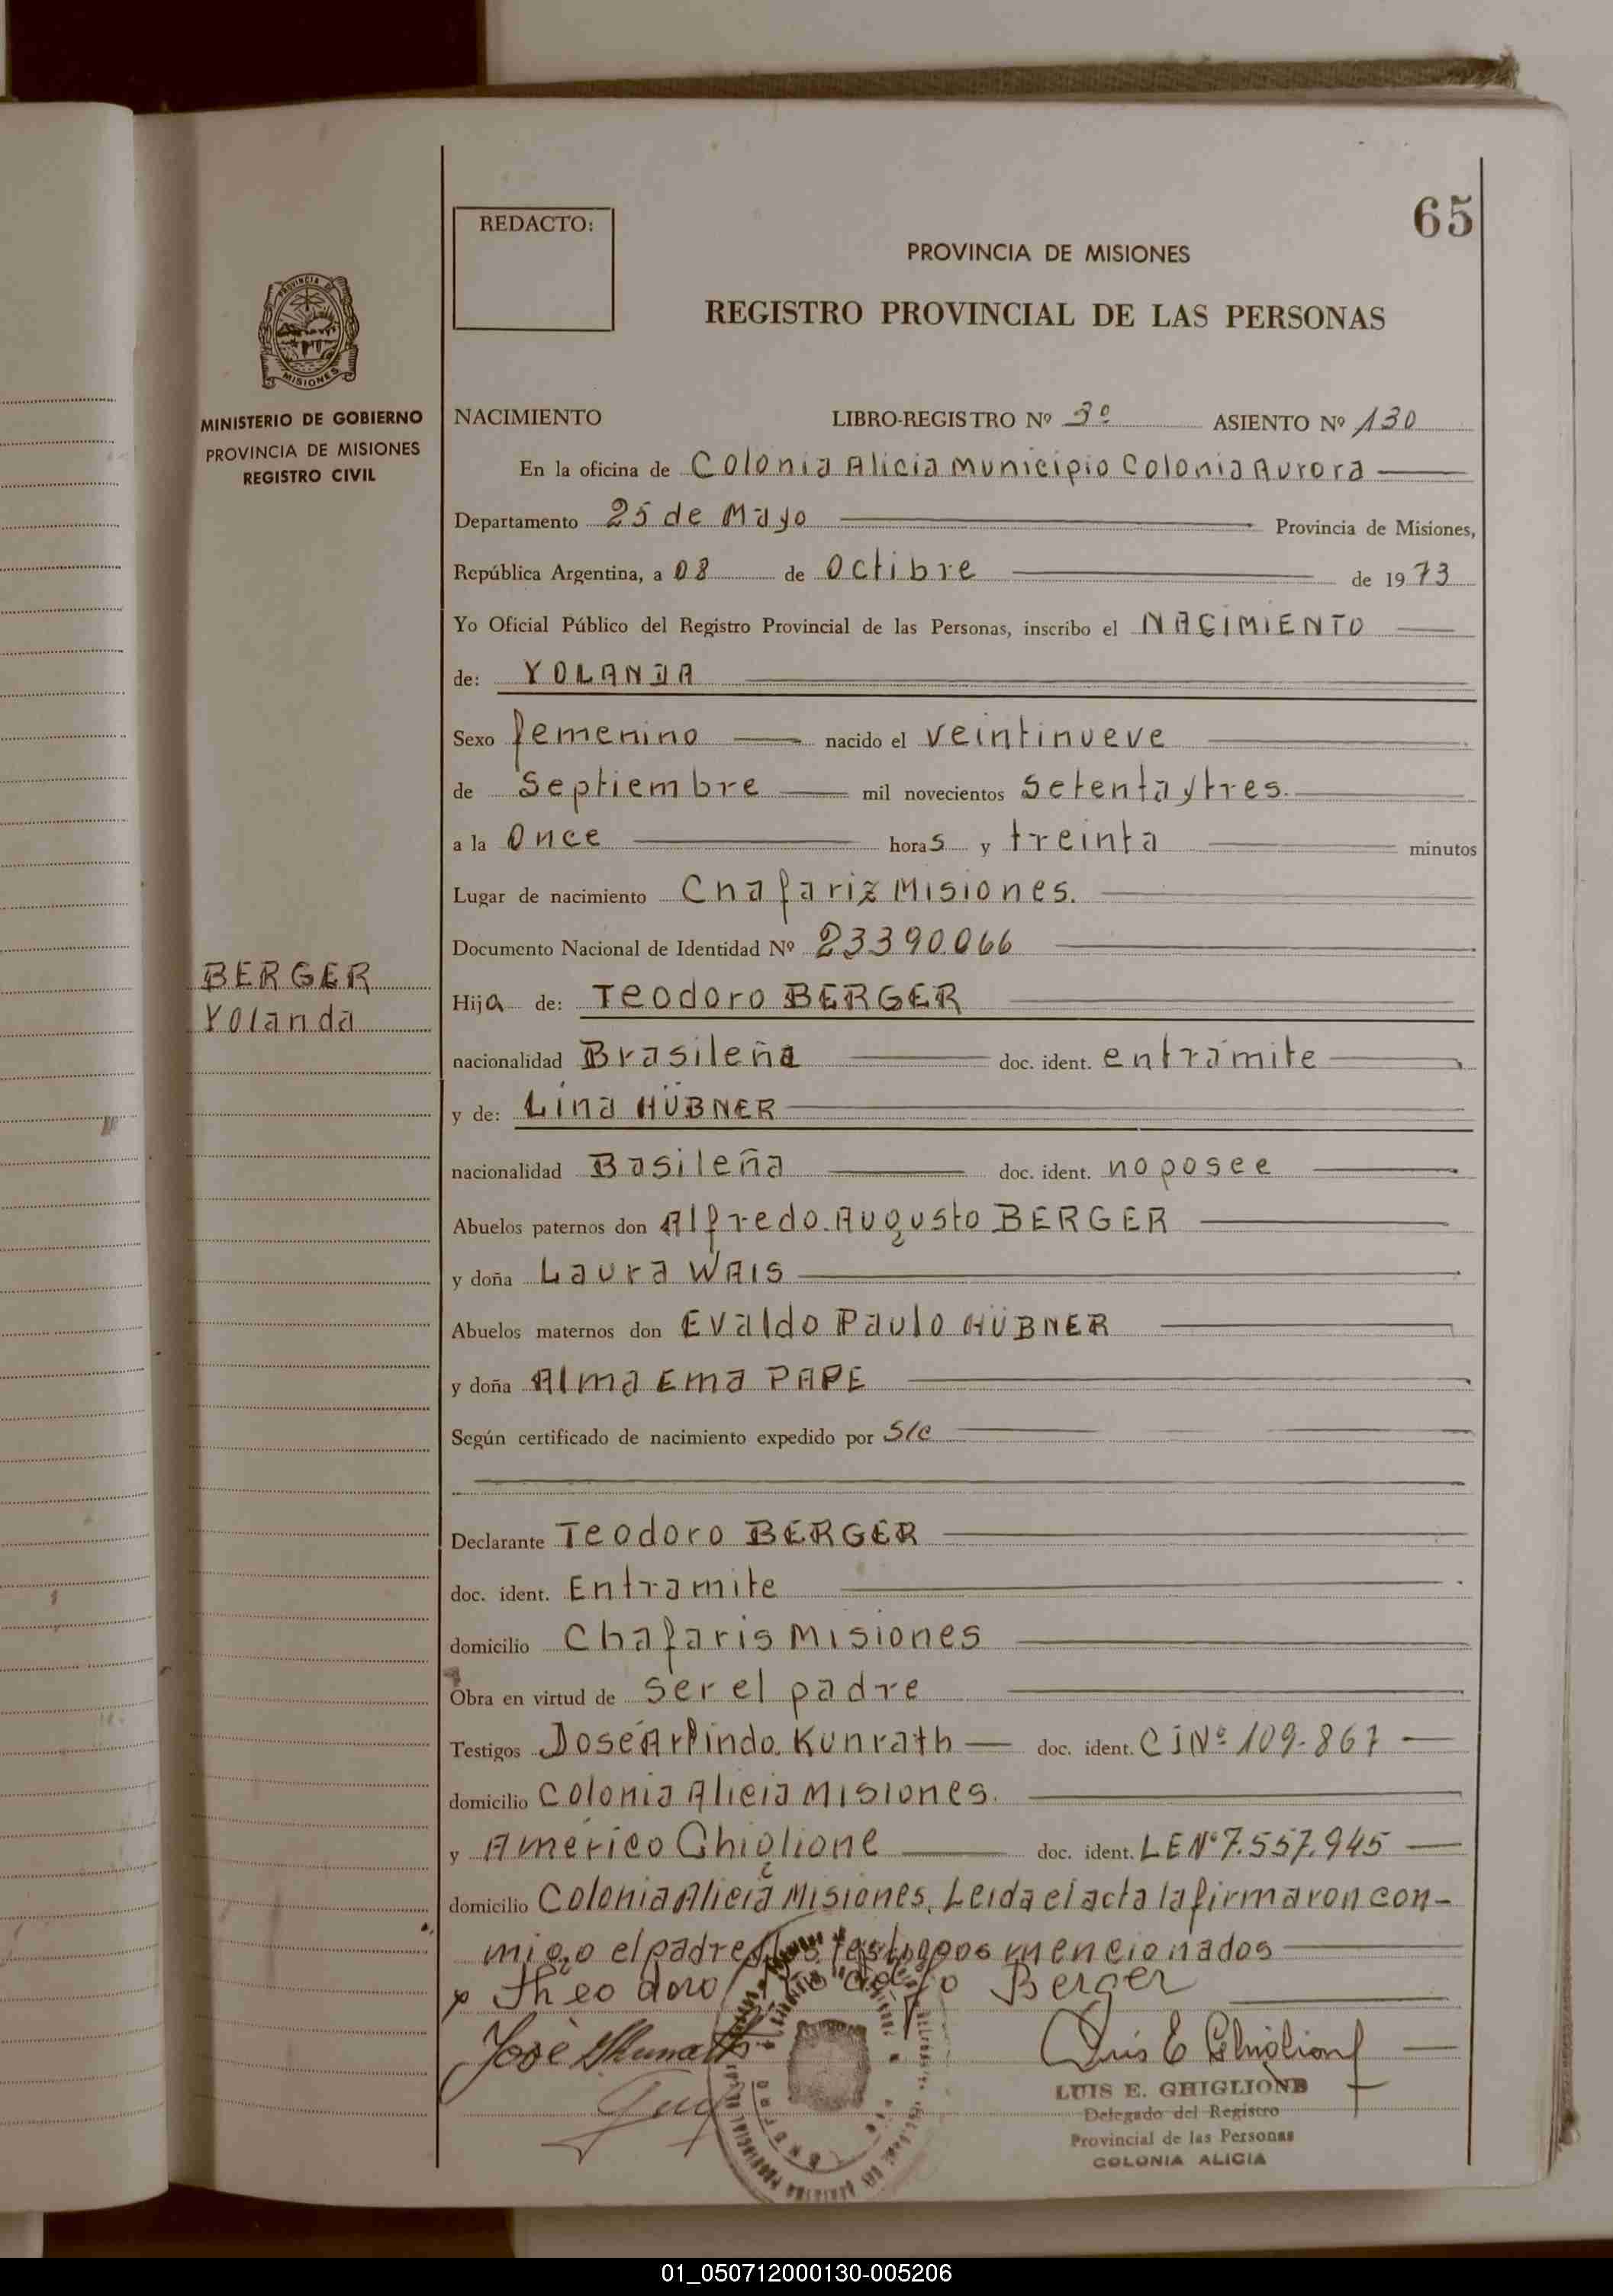 65
REDACTO:
PROVINCIA DE MISIONES
REGISTRO PROVINCIAL DE LAS PERSONAS
PROVINCIA DE
MISIONES
MINISTERIO DE GOBIERNO
PROVINCIA DE MISIONES
REGISTRO CIVIL
NACIMIENTO LIBRO-REGISTRO Nº 3º ASIENTO Nº 130
En la oficina de Colonia Alicia Municipio Colonia Aurora
Departamento 25 de Mayo Provincia de Misiones,
República Argentina, a 08 de Octibre de 1973
Yo Oficial Público del Registro Provincial de las Personas, inscribo el NACIMIENTO
de: YOLANDA
Sexo femenino nacido el veintinueve
de Septiembre mil novecientos setenta y tres.
a la Once horas y treinta minutos
Lugar de nacimiento Chafariz Misiones.
Documento Nacional de Identidad Nº 23390.066
BERGER
Yolanda
Hija de: Teodoro BERGER
nacionalidad Brasileña doc. ident. en trámite
y de: Lina HÜBNER
nacionalidad Basileña doc. ident. no posee
Abuelos paternos don Alfredo Augusto BERGER
y doña Laura WAIS
Abuelos maternos don Evaldo Paulo HÜBNER
y doña Alma Ema PAPE
Según certificado de nacimiento expedido por S/c
Declarante Teodoro BERGER
doc. ident. En tramite
domicilio Chafaris Misiones
Obra en virtud de ser el padre
Testigos José Arlindo Kunrath doc. ident. CI Nº 109.867
domicilio Colonia Alicia Misiones.
y Américo Ghiglione doc. ident. LE Nº 7.557.945
domicilio Colonia Alicia Misiones. Leida el acta la firmaron con-
migo el padre y los testigos mencionados
x Theodoro Berger
José Kunrath Luis E Ghiglione
LUIS E. GHIGLIONE
Delegado del Registro
Provincial de las Personas
COLONIA ALICIA
01_050712000130-005206